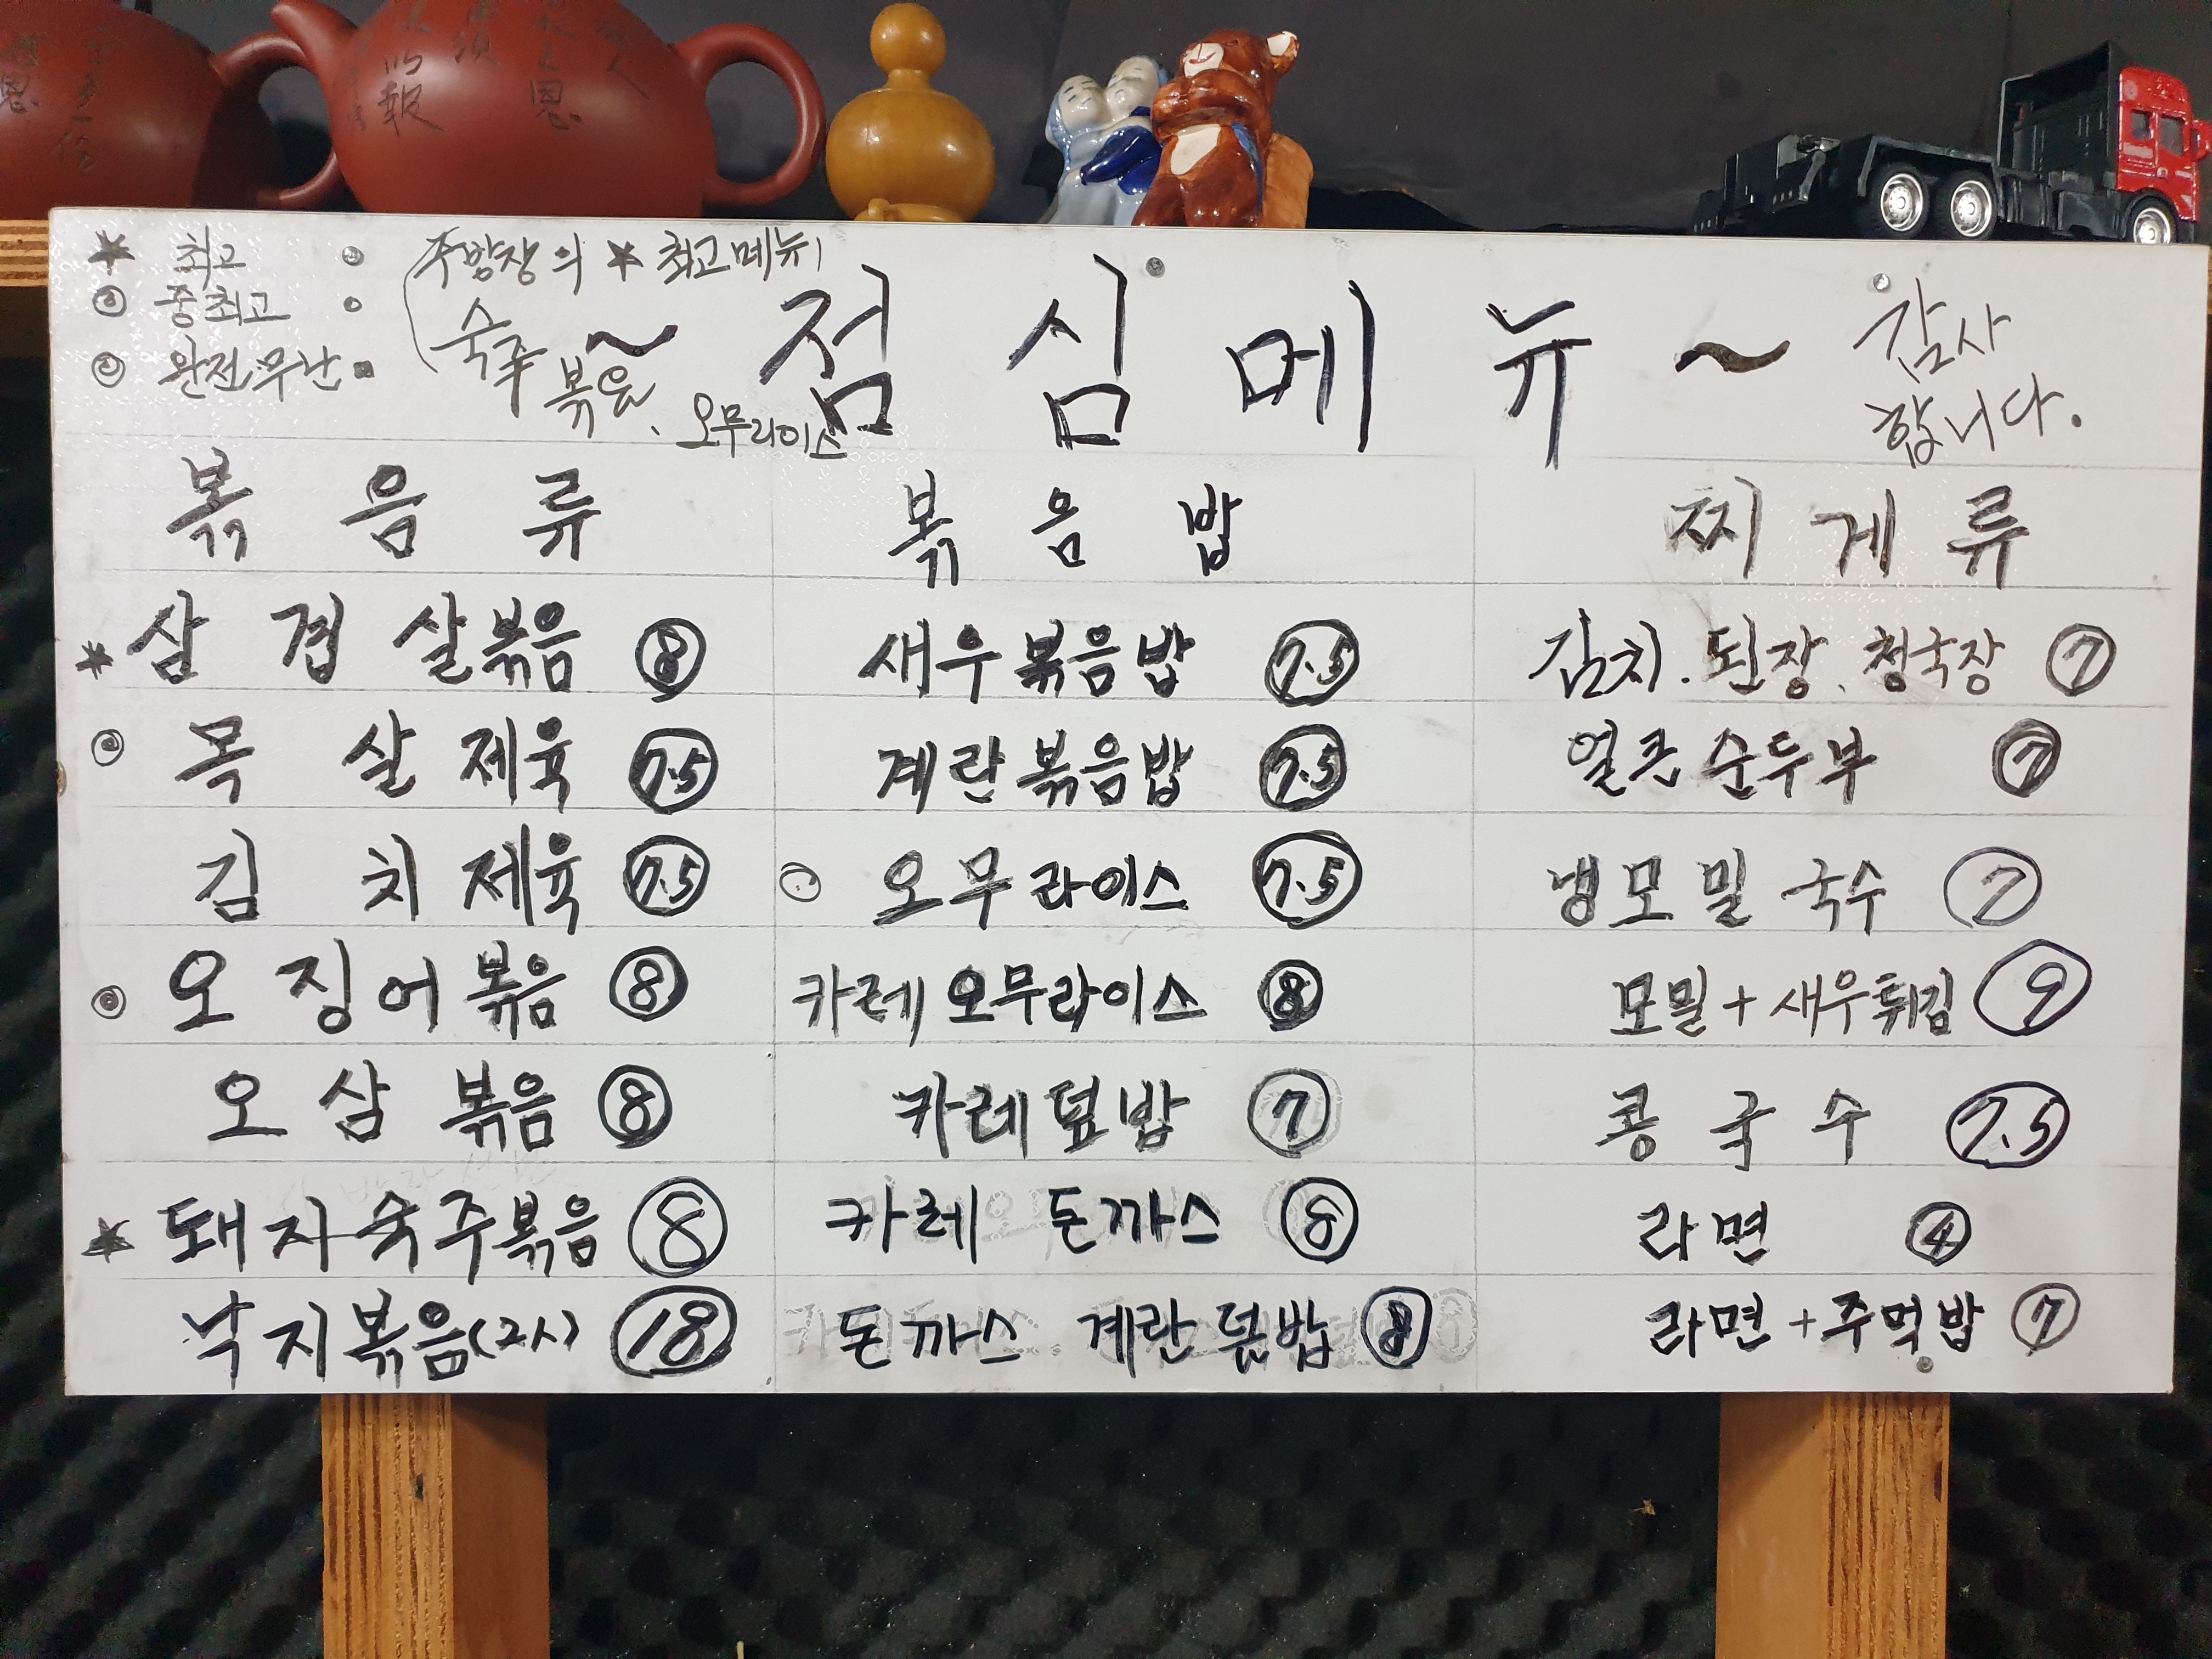 ★ 최고
◎ 중최고
◎ 완전무난
(주방장의 ★ 최고메뉴)
숙주볶음, 오무라이스
~ 점심메뉴 ~
감사
합니다.
볶음류
★ 삼겹살볶음 8
◎ 목살제육 7.5
김치제육 7.5
◎ 오징어볶음 8
오삼볶음 8
★ 돼지숙주볶음 8
낙지볶음(2人) 18
볶음밥
새우볶음밥 7.5
계란볶음밥 7.5
○ 오무라이스 7.5
카레오무라이스 8
카레덮밥 7
카레 돈까스 8
돈까스 계란덮밥 8
찌게류
김치. 된장. 청국장 7
얼큰순두부 7
냉모밀국수 7
모밀+새우튀김 9
콩국수 7.5
라면 4
라면+주먹밥 7
報
恩
恩